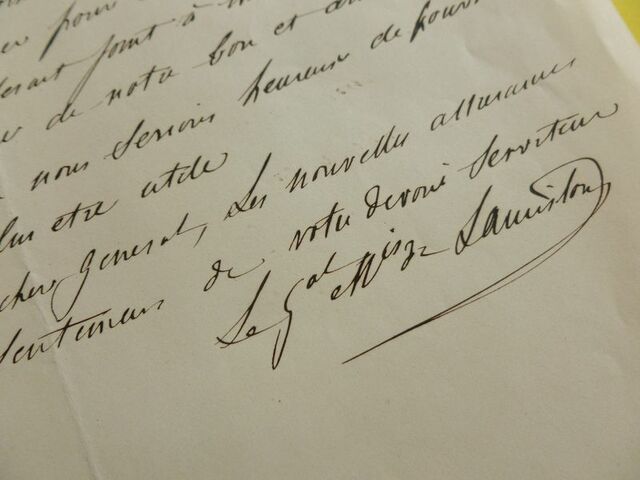 er pour
serait joint à
de notre bon et
nous serions heureux de pouvoir
plus etre utile
cher general, les nouvelles assurances
sentimens de votre devoué serviteur
Le Gal Mis de Lauriston